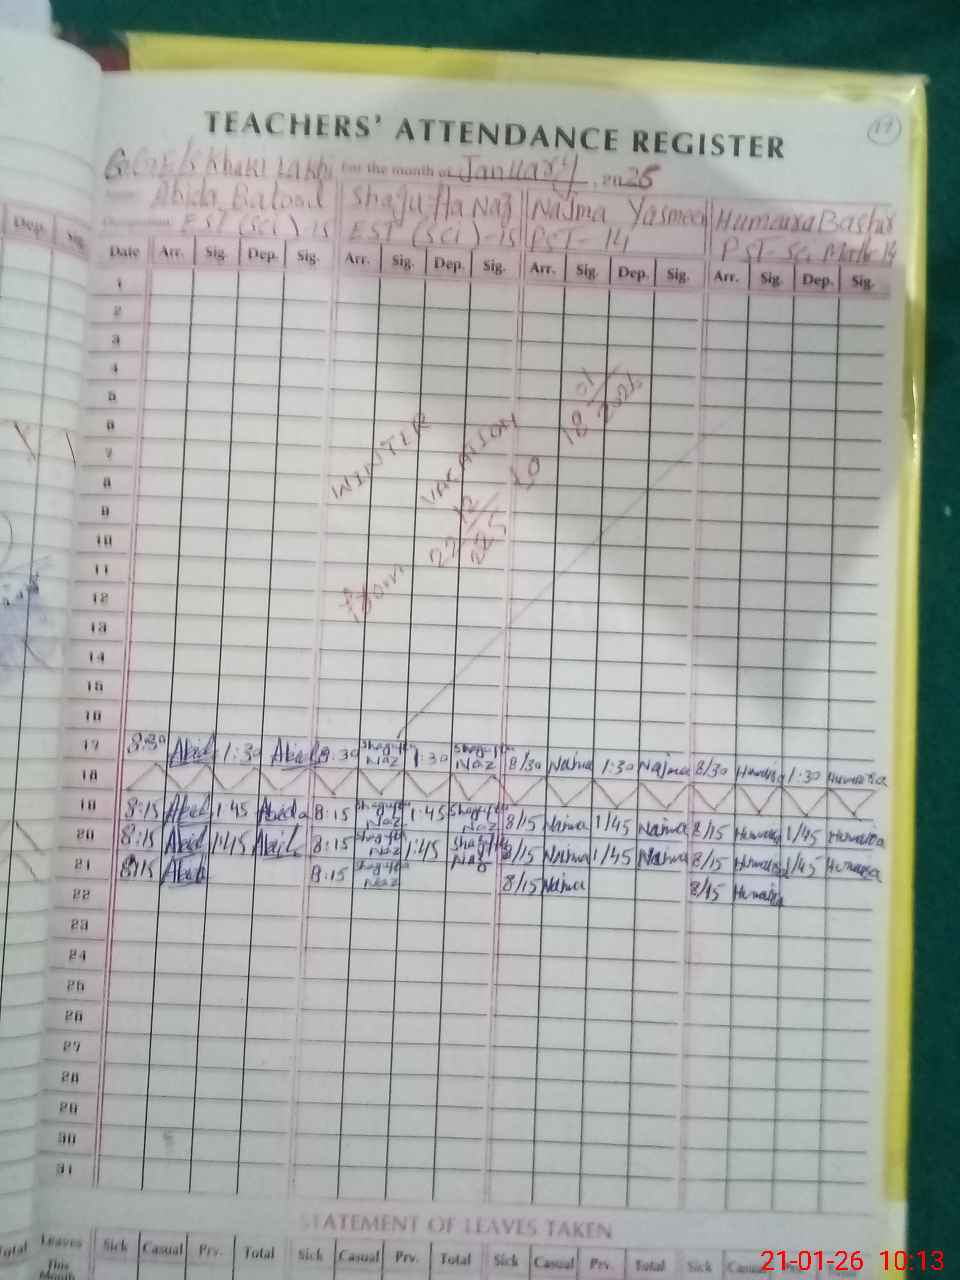 17
TEACHERS' ATTENDANCE REGISTER
G.G.E/S Khaki Lakhi For the month of January, 2026
Abida Batool Shagufta Naz Najma Yasmeen Humaira Bashir
EST (Sci)-15 EST (Sci)-15 PST-14 PST-Sci Math-14
Dep. Sig.
Date Arr. Sig. Dep. Sig. Arr. Sig. Dep. Sig. Arr. Sig. Dep. Sig. Arr. Sig. Dep. Sig.
1
2
3
4
5
6
7
8
9
10
11
12
13
14
15
16
WINTER VACATION
From 22 12/2025 to 18 01/2026
17 8:30 Abid 1:30 Abid 8:30 Shagufta Naz 1:30 Shagufta Naz 8/30 Najma 1:30 Najma 8/30 Humaira 1:30 Humaira
18
19 8:15 Abid 1:45 Abida 8:15 Shagufta Naz 1:45 Shagufta Naz 8/15 Najma 1/45 Najma 8/15 Humaira 1/45 Humaira
20 8:15 Abid 1:45 Abid 8:15 Shagufta Naz 1:45 Shagufta Naz 8/15 Najma 1/45 Najma 8/15 Humaira 1/45 Humaira
21 8:15 Abid 8:15 Shagufta Naz 8/15 Najma 8/15 Humaira
22
23
24
25
26
27
28
29
30
31
STATEMENT OF LEAVES TAKEN
Total Leaves Sick Casual Prv. Total Sick Casual Prv. Total Sick Casual Prv. Total Sick Casual
This Month
21-01-26 10:13